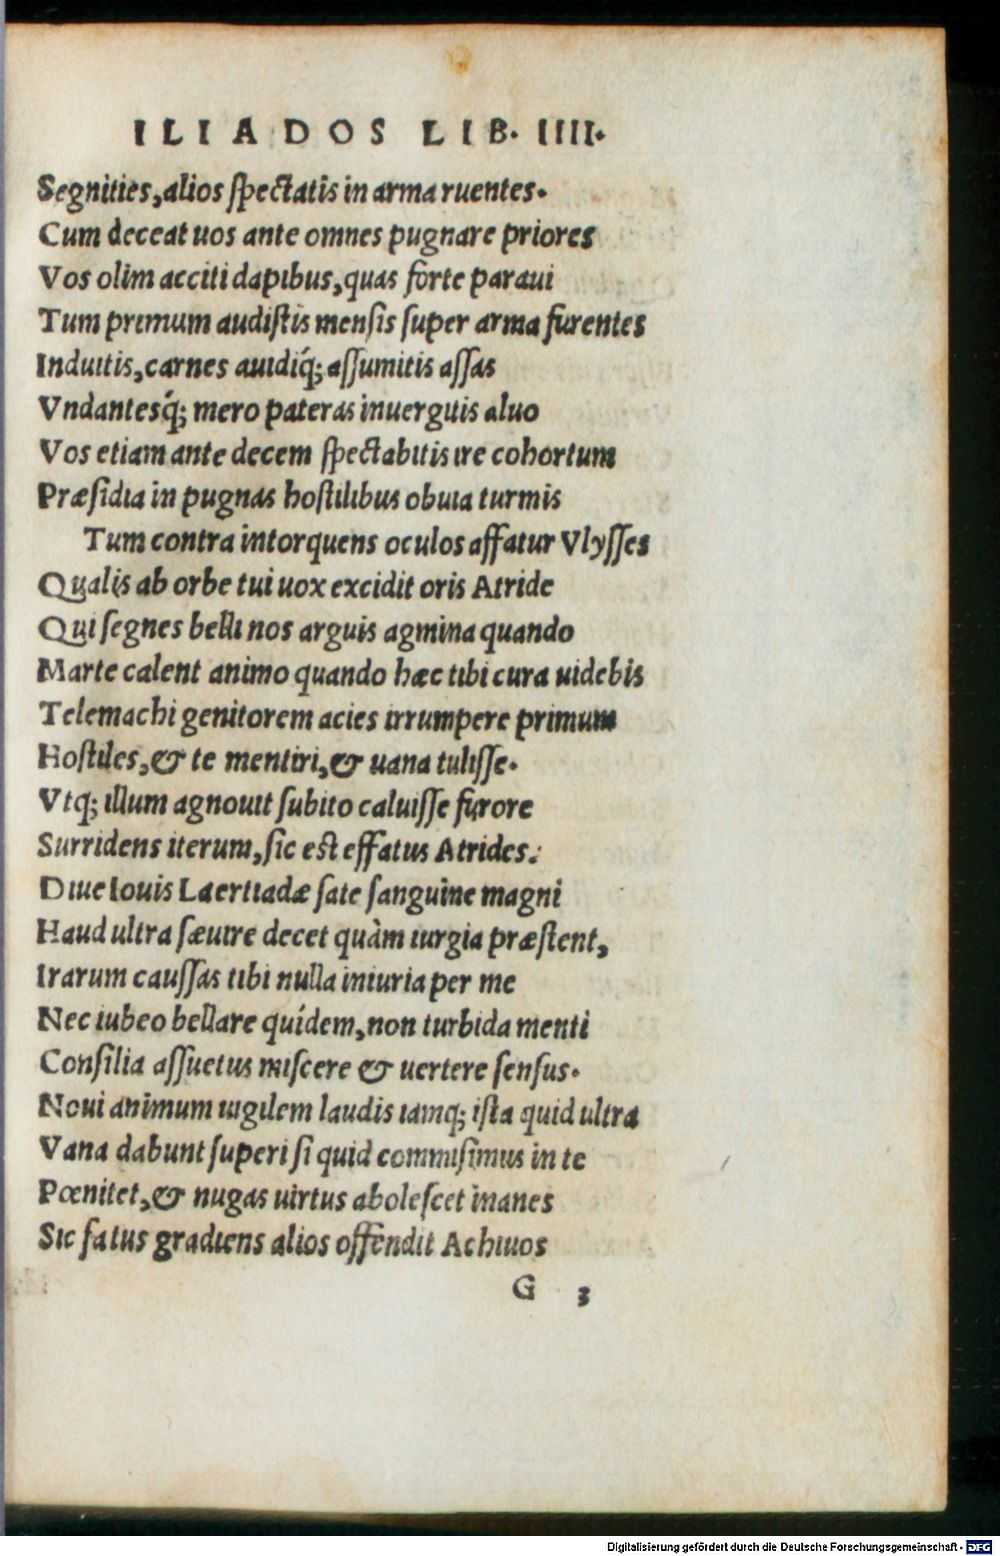 ILIADOS LIB. IIII.
Segnities, alios spectatis in arma ruentes.
Cum deceat uos ante omnes pugnare priores
Vos olim acciti dapibus, quas forte paraui
Tum primum audistis mensis super arma furentes
Induitis, carnes auidiq́; assumitis assas
Vndantesq́; mero pateras inuergitis aluo
Vos etiam ante decem spectabitis ire cohortum
Præsidia in pugnas hostilibus obuia turmis
Tum contra intorquens oculos affatur Vlysses
Qualis ab orbe tui uox excidit oris Atride
Qui segnes belli nos arguis agmina quando
Marte calent animo quando hæc tibi cura uidebis
Telemachi genitorem acies irrumpere primum
Hostiles, & te mentiri, & uana tulisse.
Vtq; illum agnouit subito caluisse furore
Surridens iterum, sic est effatus Atrides.
Diue Iouis Laertiadæ sate sanguine magni
Haud ultra sæuire decet quàm iurgia præstent,
Irarum caussas tibi nulla iniuria per me
Nec iubeo bellare quídem, non turbida menti
Consilia assuetus miscere & uertere sensus.
Noui animum uigilem laudis iamq; ista quid ultra
Vana dabunt superi si quid commisimus in te
Pœnitet, & nugas uirtus abolescet inanes
Sic fatus gradiens alios offendit Achiuos
G 3
Digitalisierung gefördert durch die Deutsche Forschungsgemeinschaft - DFG